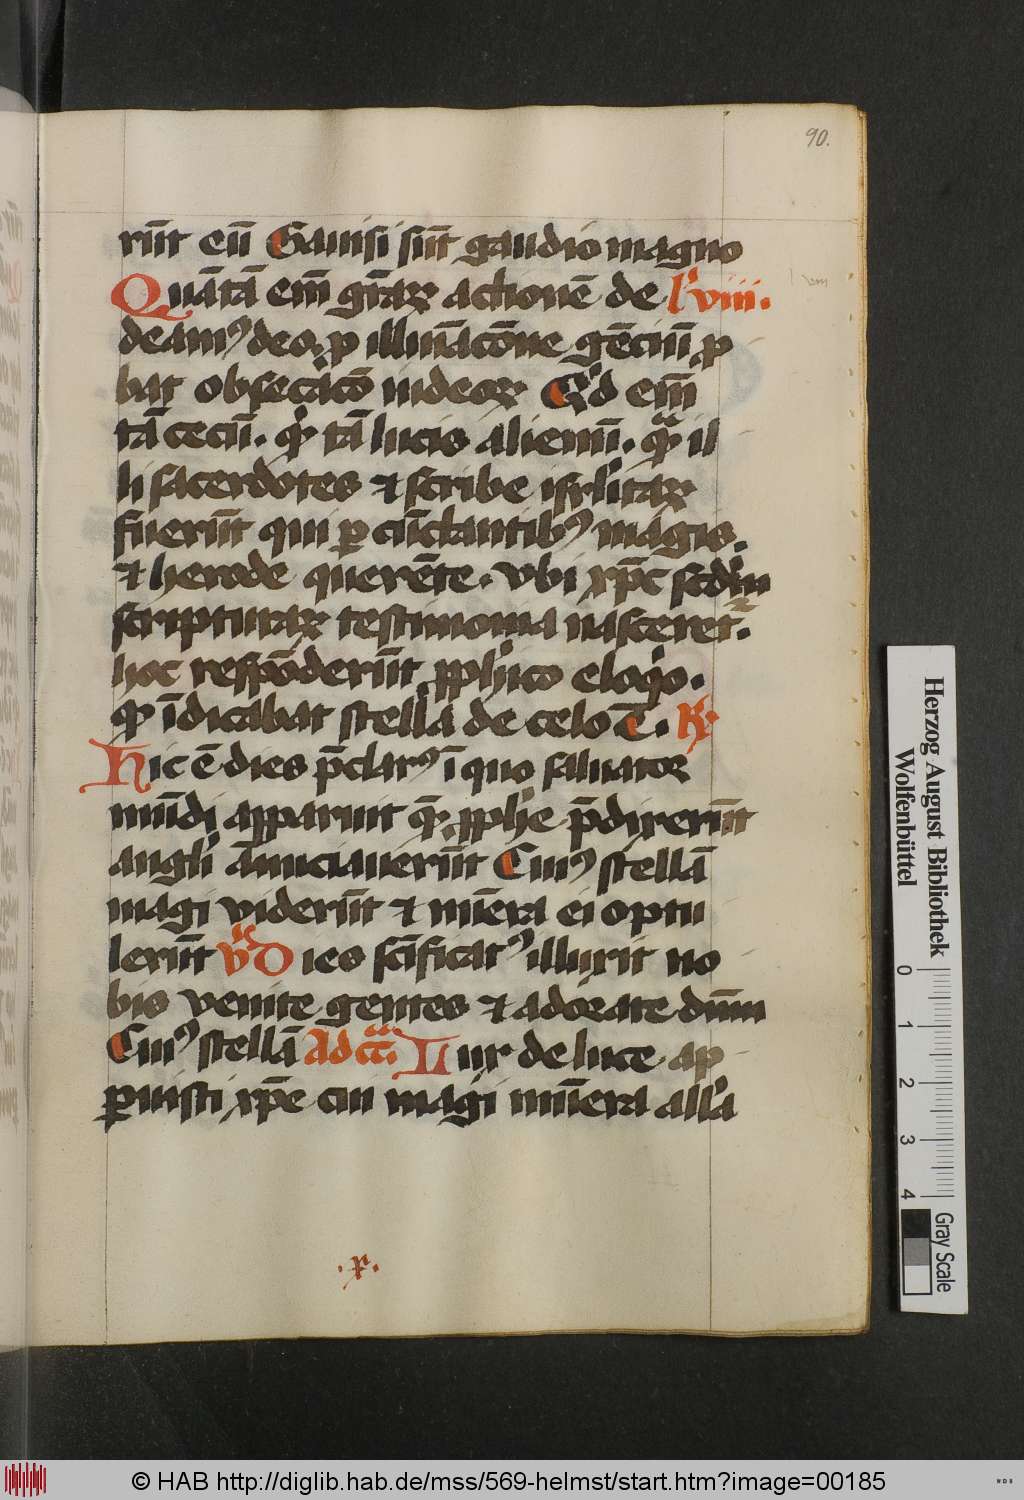 90.
rūt eū Gauisi sūt gaudio magno
Quātā em̄ gr̄aꝝ actionē de lc̄ viii.
deamꝰ deo. ꝓ illūīac̄one gēciū ꝓ
bat obsecac̄o iudeoꝝ Qͥd em̄
tā cecū. qͥ tā lucis alienū. qͣ il
li sacerdotes ⁊ scribe isrl̄itaꝝ
fuerūt qui ꝑcūctantibꝰ magis.
⁊ herode querēte. vbi xp̄c scd̄m
scripturaꝝ testimonia nasceret᷑.
hoc respōderūt ꝓph̄ico eloqͦ.
qͦ īdicabat stella de celo Ē. R̄
Hic ē dies p̄clarꝰ ī quo saluator
mūdi apparuit qͣ ꝓph̄e p̄dixerūt
angl̄i ānūciauerūt Cuiꝰ stellā
magi viderūt ⁊ mūera ei optu
lerūt v̄s Dies sc̄ificatꝰ illuxit no
bis venite gentes ⁊ adorate dn̄m
Cuiꝰ stellā Ad cc̄ᷓ. Lux de luce ap
ꝑuisti xp̄e cui magi mūera all̄a
.x.
Herzog August Bibliothek
Wolfenbüttel
0 1 2 3 4
Gray Scale
© HAB http://diglib.hab.de/mss/569-helmst/start.htm?image=00185